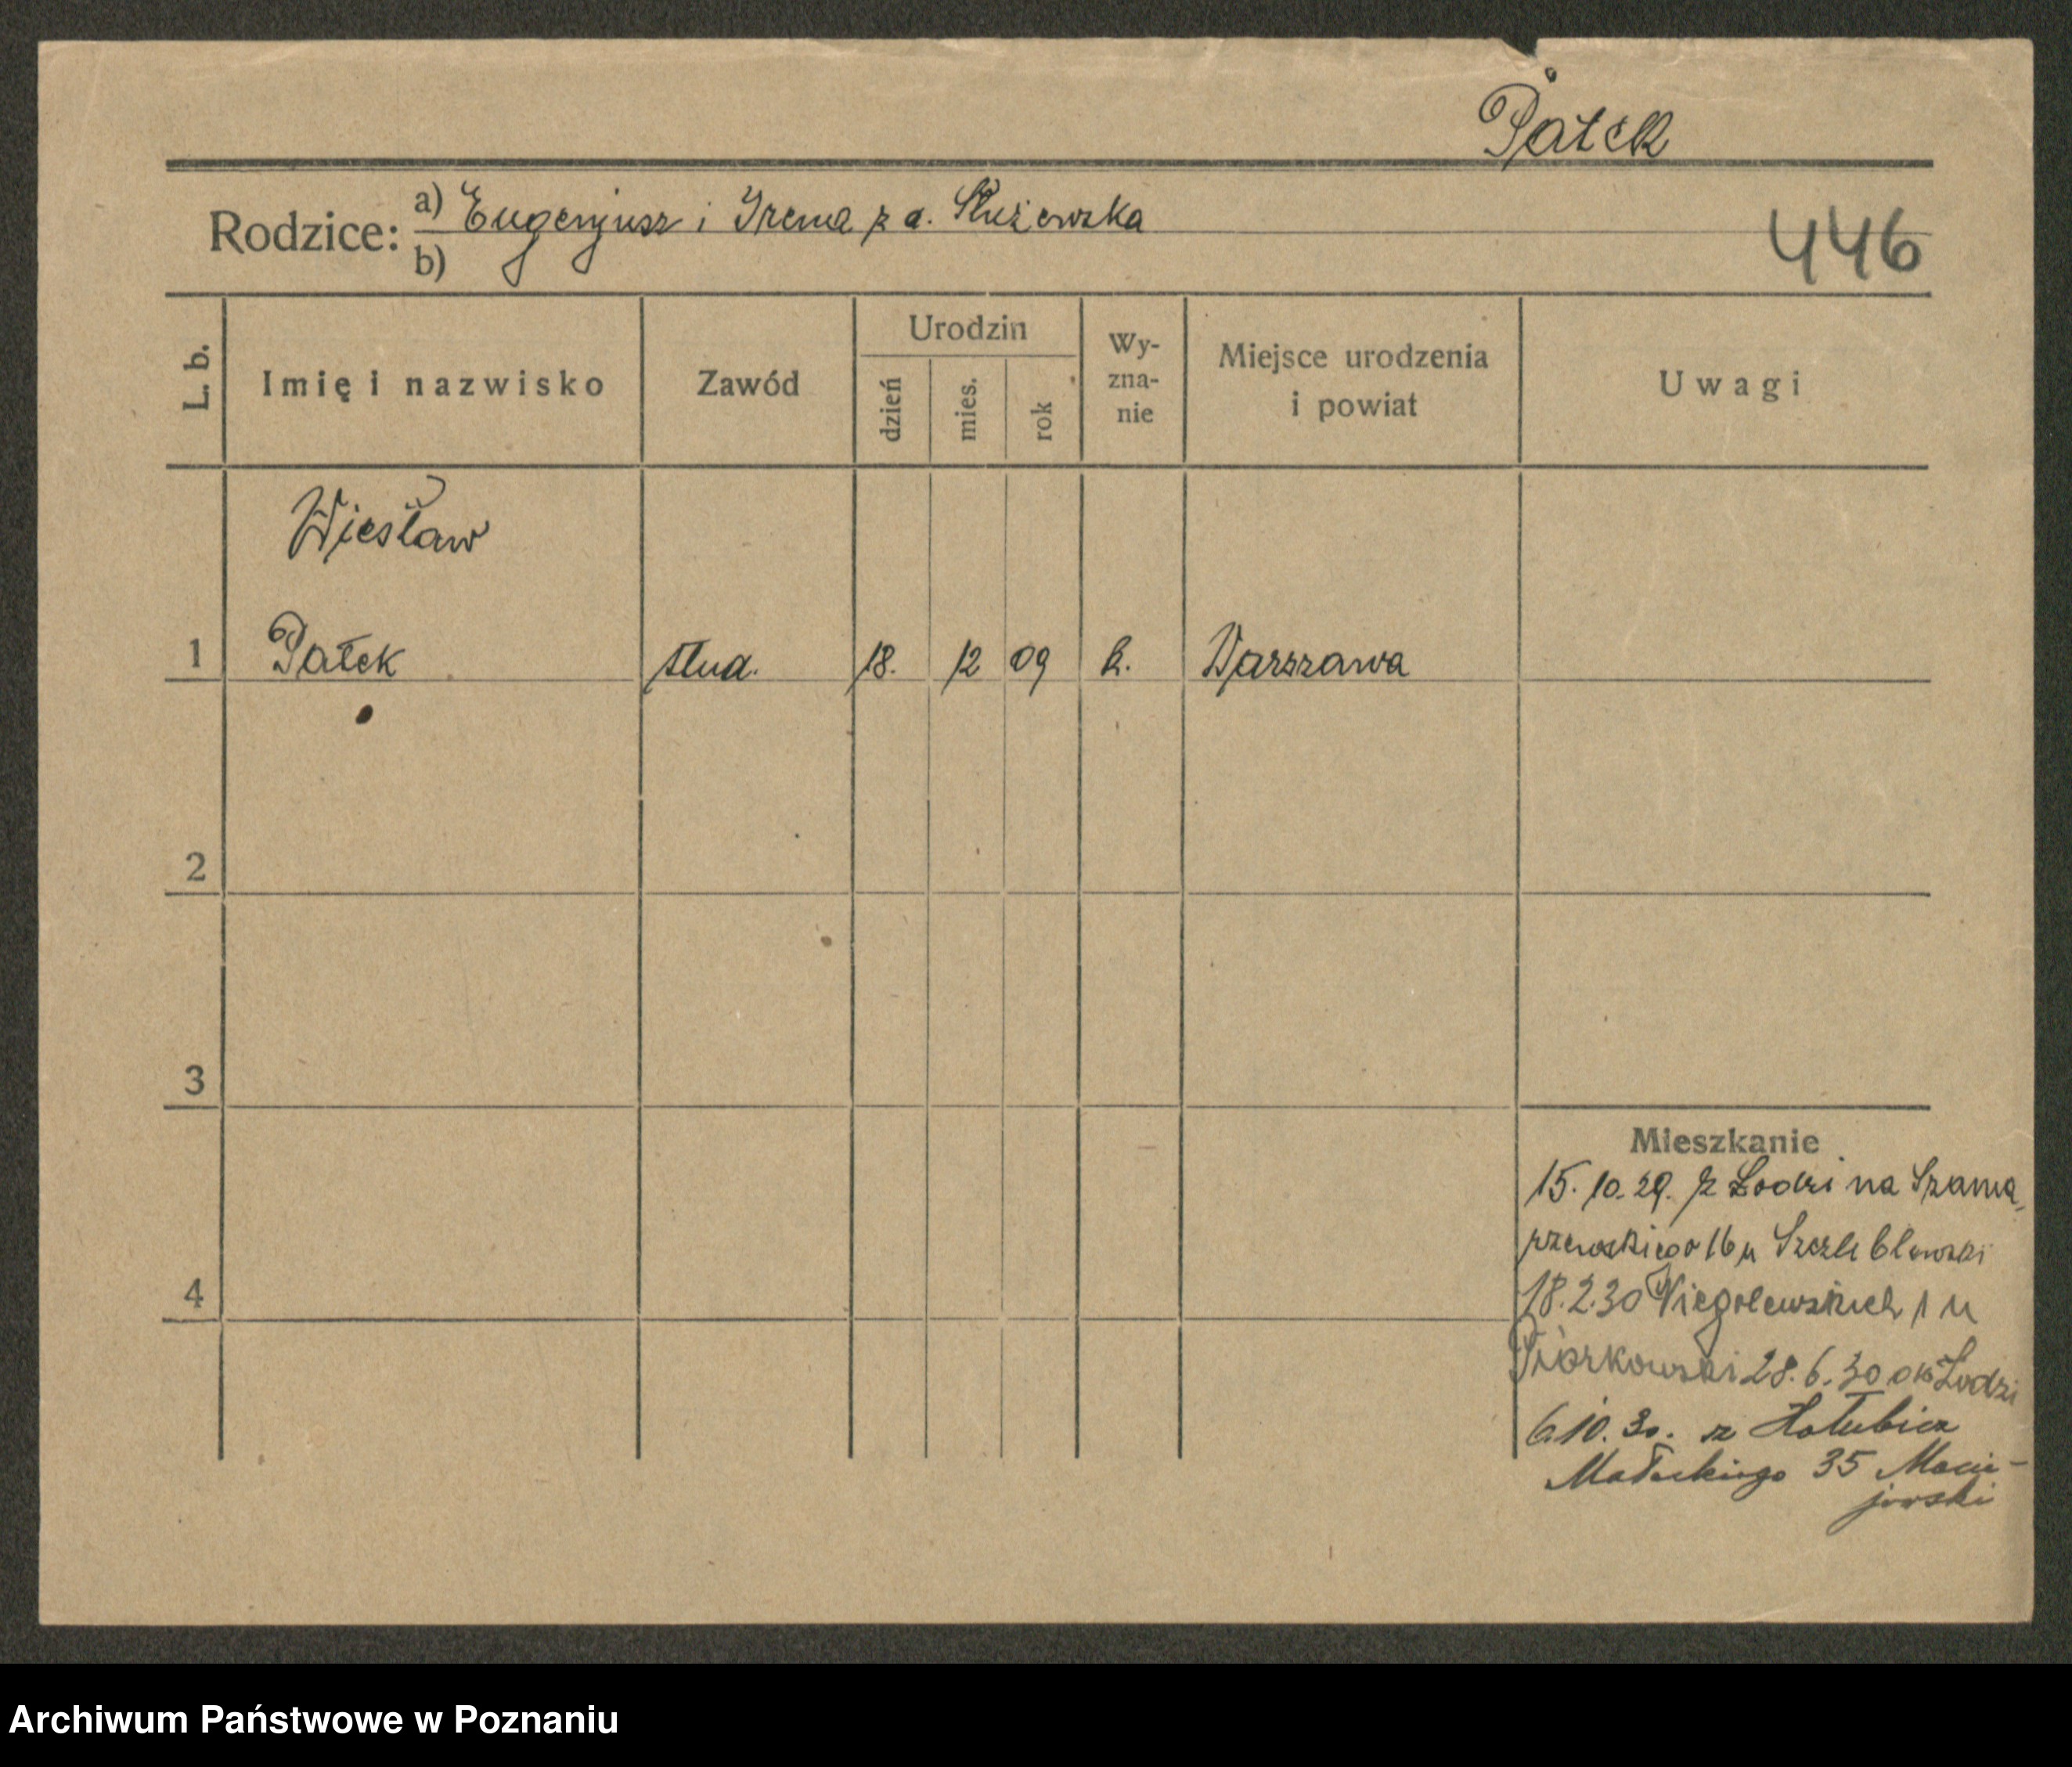 Pałek
Rodzice: a) Eugenjusz i Irena z d. Służewska
b)
446
L. b.
Imię i nazwisko
Zawód
Urodzin
dzień
mies.
rok
Wy-
zna-
nie
Miejsce urodzenia
i powiat
Uwagi
Wiesław
1 Pałek stud. 18. 12 09 k. Warszawa
2
3
4
Mieszkanie
15. 10. 29. z Łodzi na Szama
rzewskiego 16 u
18.2.30 Niegolewskich 1 u
Piórkowski 28.6.30 do Łodzi
6.10.30. z Hołubicz
Małeckiego 35 Macie-
jewski
Archiwum Państwowe w Poznaniu